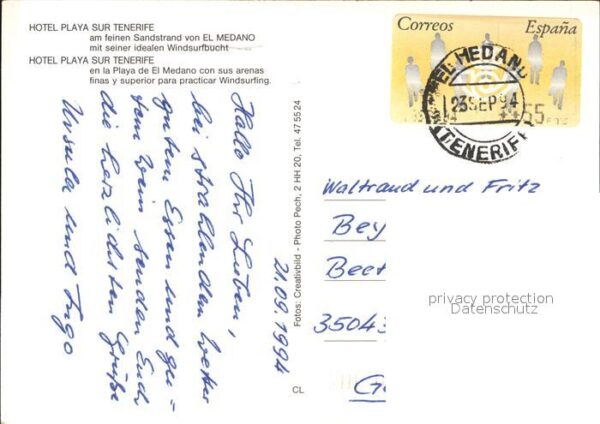 HOTEL PLAYA SUR TENERIFE
am feinen Sandstrand von EL MEDANO
mit seiner idealen Windsurfbucht
HOTEL PLAYA SUR TENERIFE
en la Playa de El Medano con sus arenas
finas y superior para practicar Windsurfing.
Hallo Ihr Lieben,
bei strahlenden Wetter
gutem Essen und gu-
tem Wein senden Euch
die herzlichsten Grüße
Ursula und Ingo
21.09.1994
Fotos: Creativbild - Photo Pech, 2 HH 20, Tel. 47 55 24
CL
Correos España
EL MEDANO
23 SEP 94
TENERIFE
Waltraud und Fritz
Bey
Beet
35043
privacy protection
Datenschutz